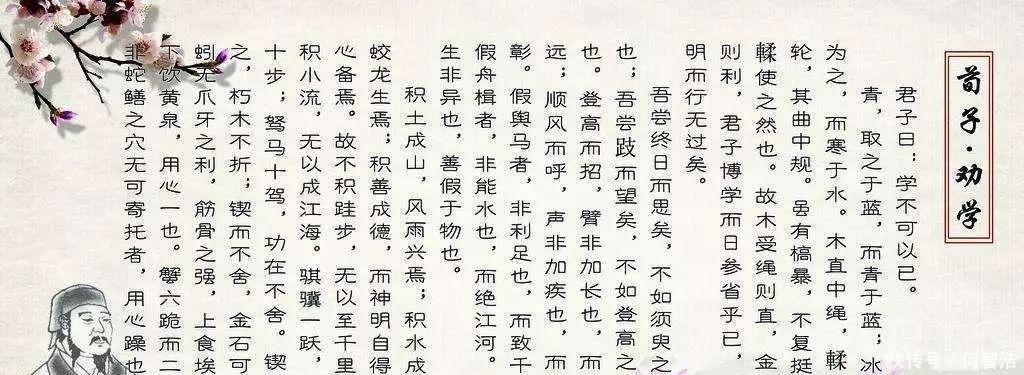 荀子·劝学
君子曰:学不可以已。
青,取之于蓝,而青于蓝;冰
为之,而寒于水。木直中绳,輮
轮,其曲中规。虽有槁暴,不复挺
輮使之然也。故木受绳则直,金
则利,君子博学而日参省乎已,
明而行无过矣。
吾尝终日而思矣,不如须臾之
也;吾尝跂而望矣,不如登高之
也。登高而招,臂非加长也,而
远;顺风而呼,声非加疾也,而
彰。假舆马者,非利足也,而致千
假舟楫者,非能水也,而绝江河。
生非异也,善假于物也。
积土成山,风雨兴焉;积水成
蛟龙生焉;积善成德,而神明自得
心备焉。故不积跬步,无以至千里
积小流,无以成江海。骐骥一跃,
十步;驽马十驾,功在不舍。锲
之,朽木不折;锲而不舍,金石可
蚓无爪牙之利,筋骨之强,上食埃
下饮黄泉,用心一也。蟹六跪而二
非蛇鳝之穴无可寄托者,用心躁也
快传号/何智浩